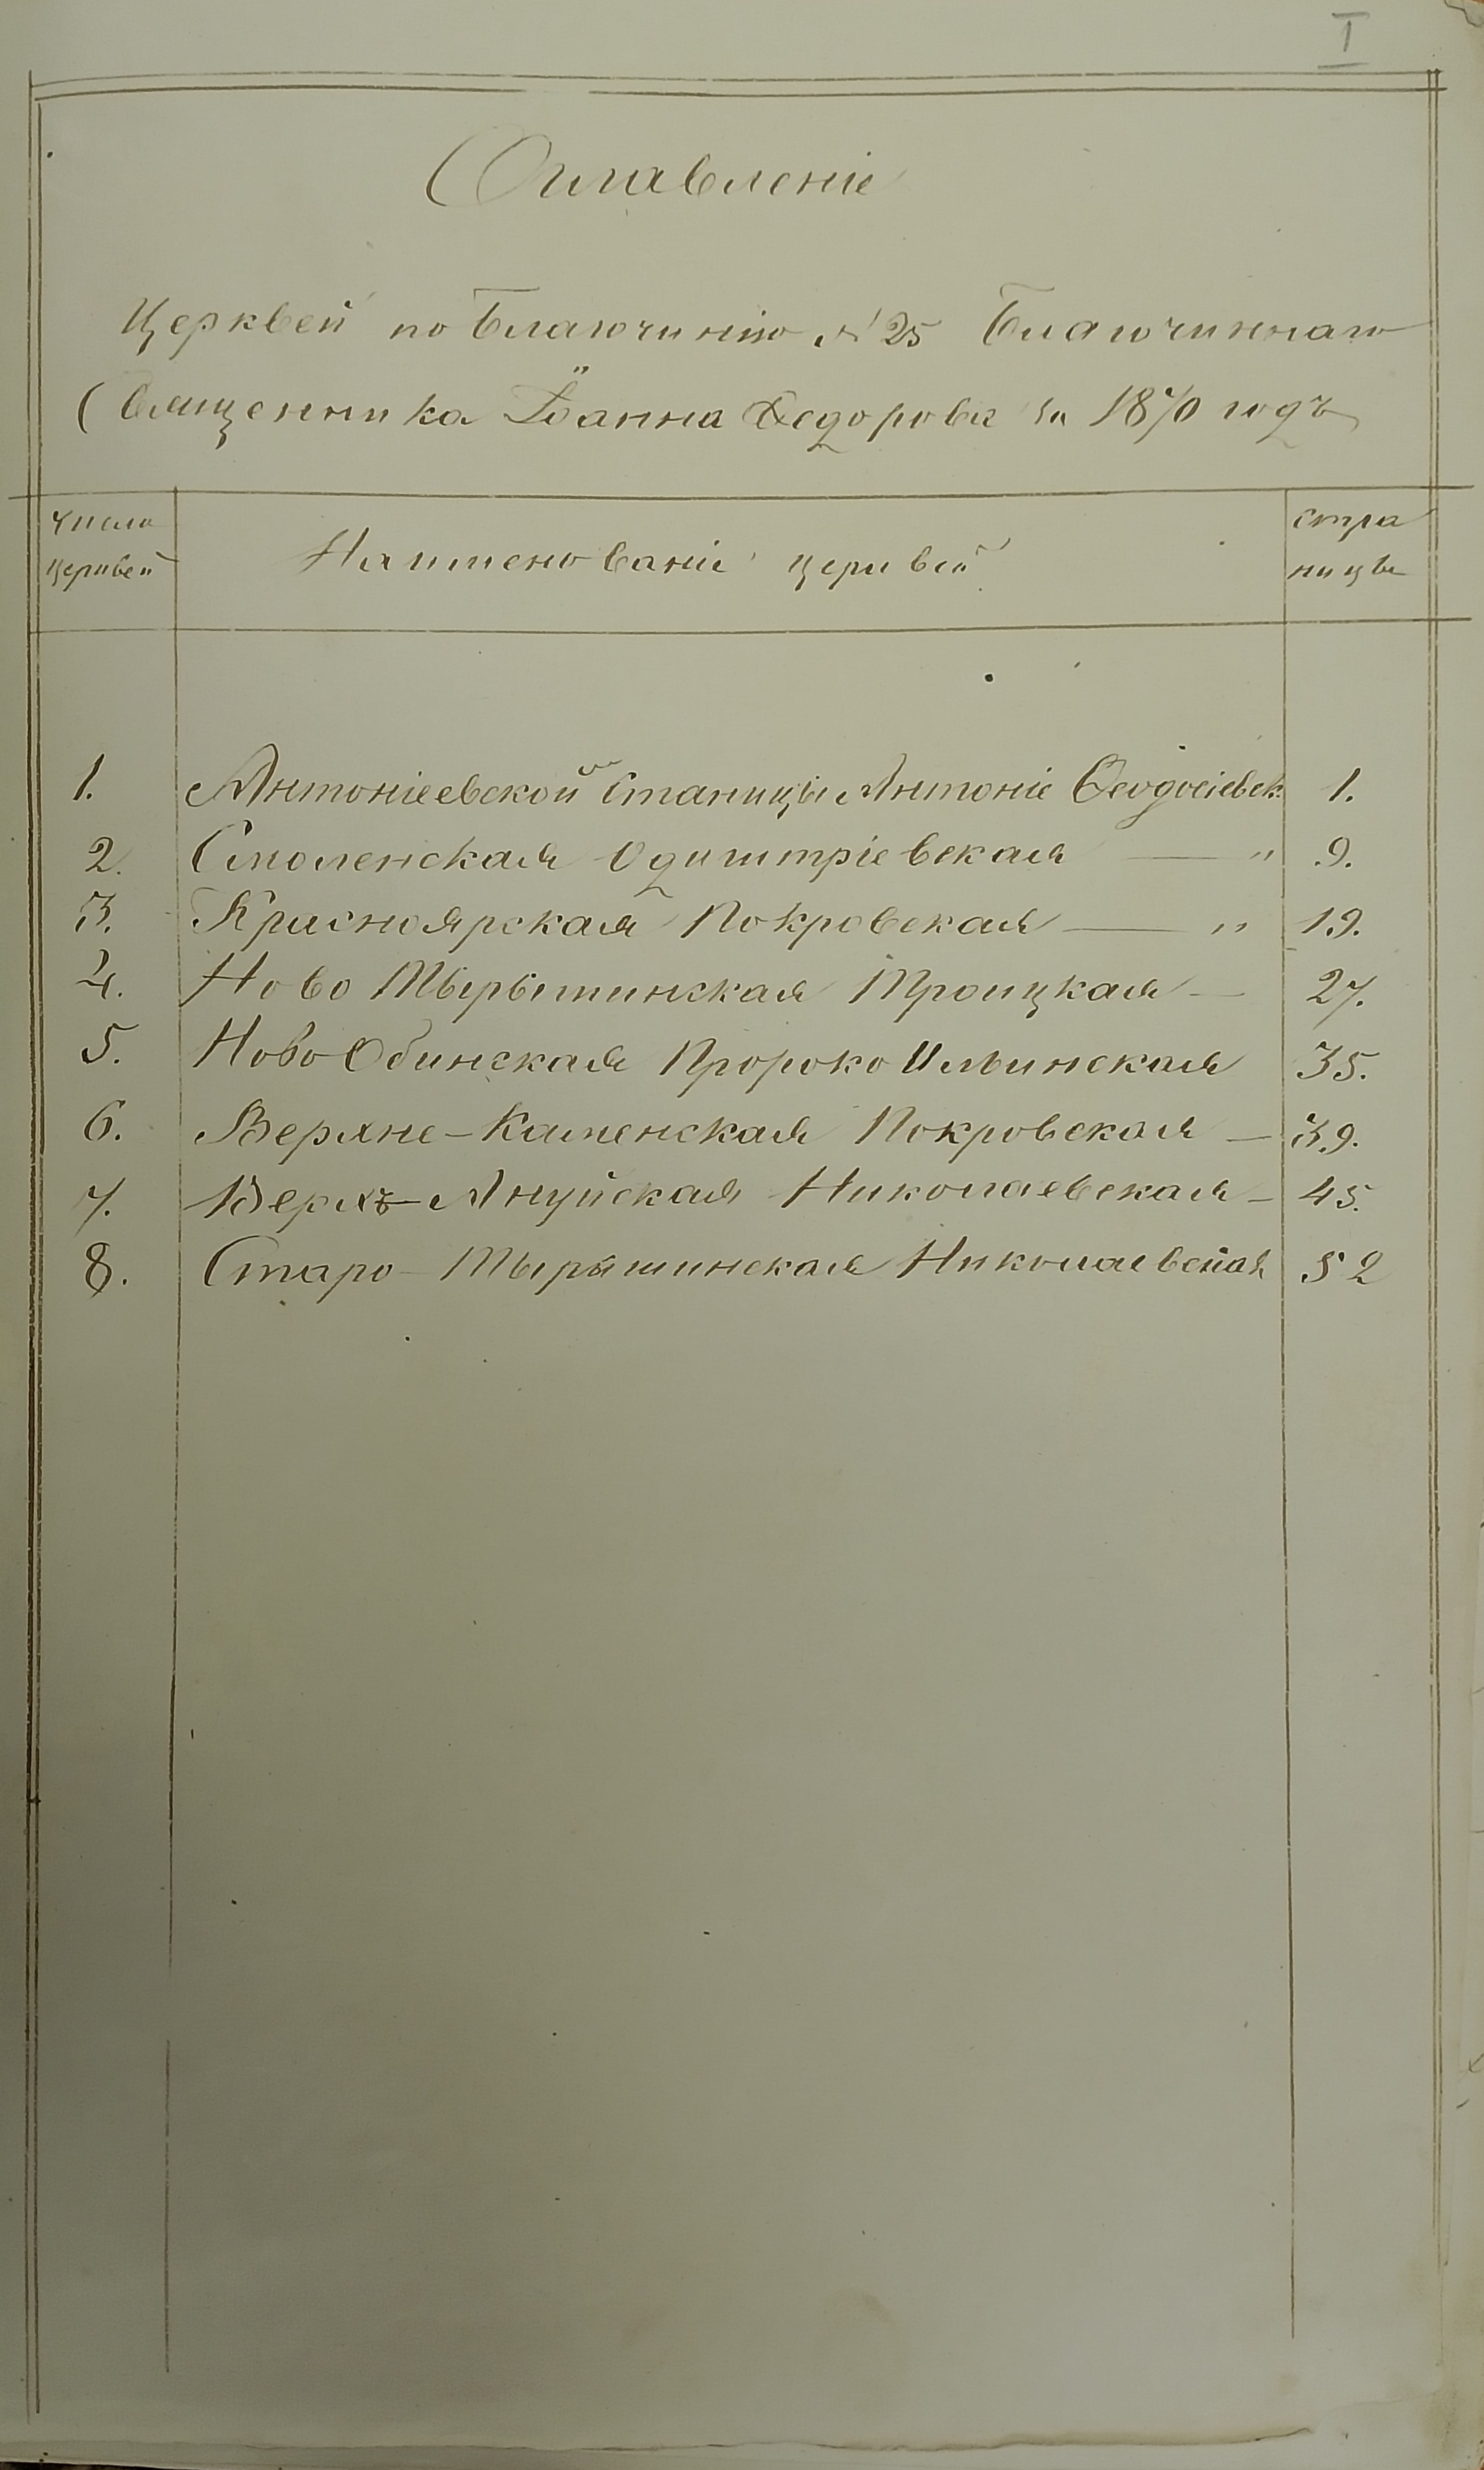 I
Оглавленіе
Церквей по Благочинію № 25 Благочиннаго
Священника Іоанна Федорова за 1870 годъ
число
церквей
Наименованіе церквей
стра
ницы
1. Антоніеевской Станицы Антоніе Ѳеодосіевск. 1.
2. Смоленская Одигитріевская — " 9.
3. Красноярская Покровская — " 19.
4. Ново Тырышкинская Троицкая — 27.
5. Ново Обинская Пророко Ильинская 35.
6. Верхне-Каменская Покровская — 39.
7. Верхъ-Ануйская Николаевская — 45.
8. Старо-Тырышкинская Николаевская 52